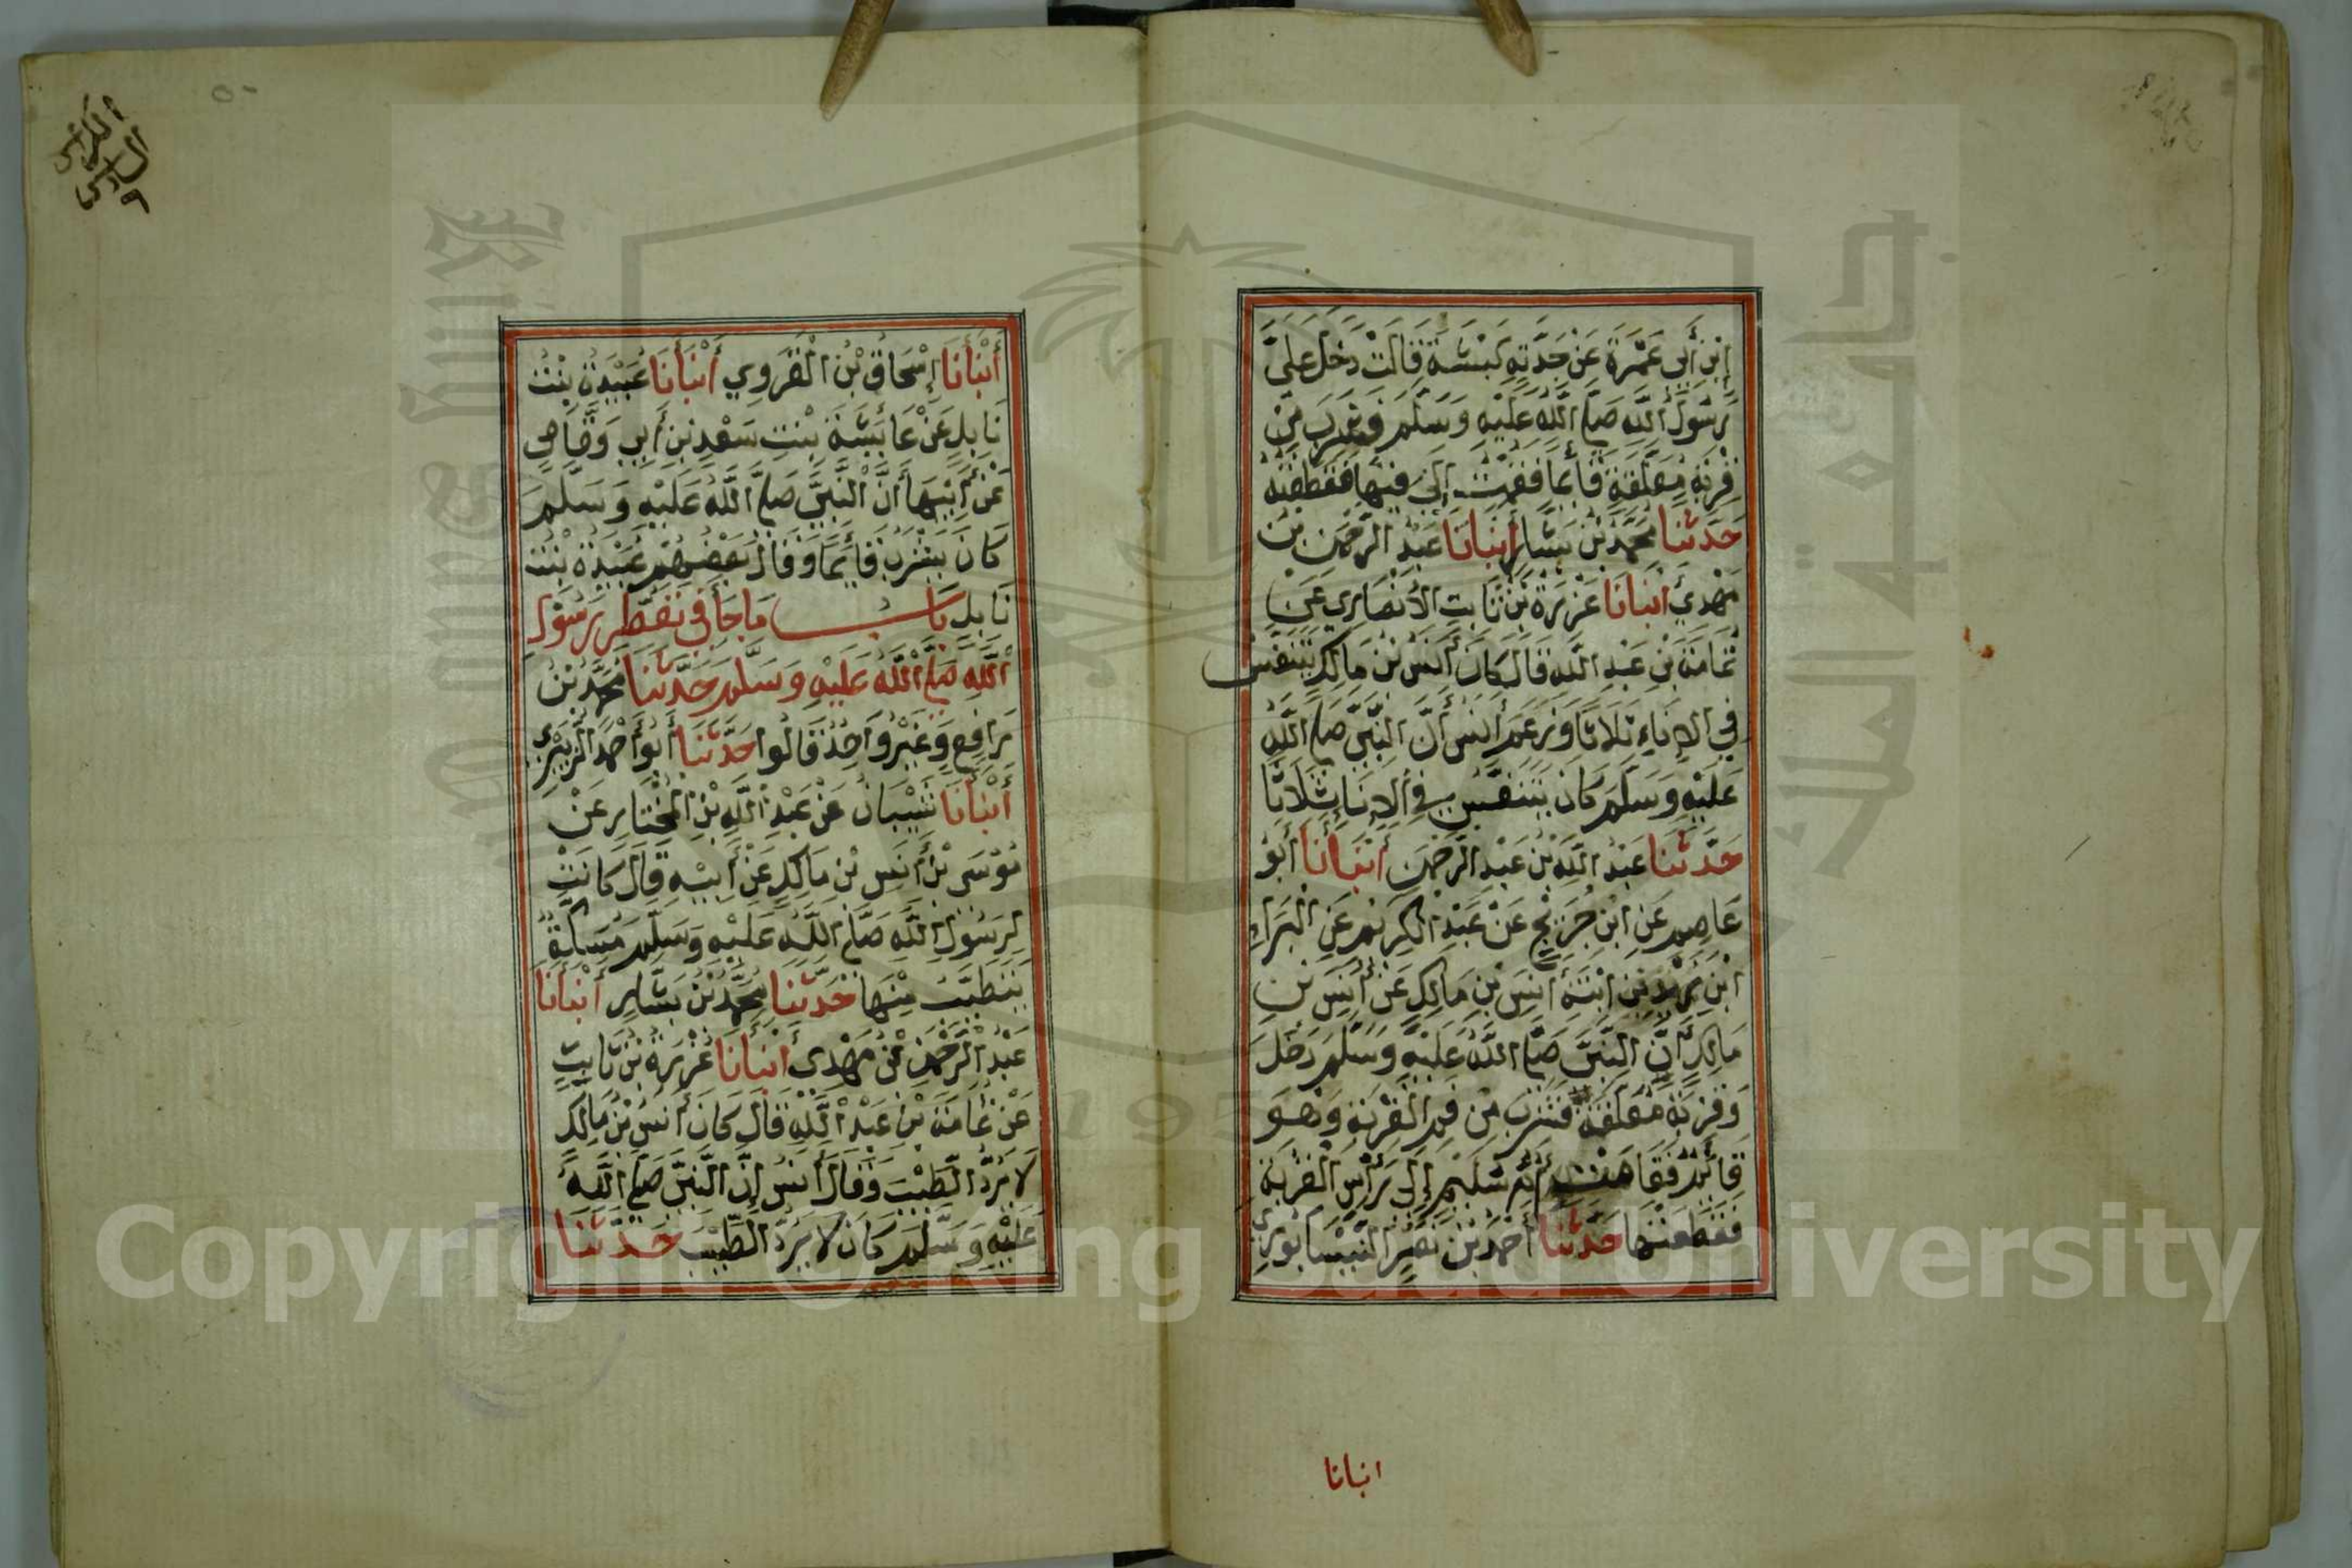 إِبْنِ أَبِي عَمْرَةَ عَنْ جَدَّتِهِ كَبْشَةَ قَالَتْ دَخَلَ عَلَيَّ
رَسُولُ اللَّهِ صَلَّى اللَّهُ عَلَيْهِ وَسَلَّمَ فَشَرِبَ مِنْ
قِرْبَةٍ مُعَلَّقَةٍ قَائِمًا فَقُمْتُ إِلَى فِيهَا فَقَطَعْتُهُ
حَدَّثَنَا مُحَمَّدُ بْنُ بَشَّارٍ أَنْبَأَنَا عَبْدُ الرَّحْمَنِ بْنِ
مَهْدِي أَنْبَأَنَا عَزْرَةُ بْنُ ثَابِتِ الأَنْصَارِي عَنْ
ثُمَامَةَ بْنِ عَبْدِ اللَّهِ قَالَ كَانَ أَنَسُ بْنُ مَالِكٍ يَتَنَفَّسُ
فِي الإِنَاءِ ثَلَاثًا وَزَعَمَ أَنَسُ أَنَّ النَّبِيَّ صَلَّى اللَّهُ
عَلَيْهِ وَسَلَّمَ كَانَ يَتَنَفَّسُ فِي الإِنَاءِ ثَلَاثًا
حَدَّثَنَا عَبْدُ اللَّهِ بْنُ عَبْدِ الرَّحْمَنِ أَنْبَأَنَا أَبُو
عَاصِمٍ عَنِ ابْنِ جُرَيْجٍ عَنْ عَبْدِ الْكَرِيمِ عَنِ الْبَرَاءِ
ابْنِ زَيْدِ بْنِ ابْنَةِ أَنَسِ بْنِ مَالِكٍ عَنْ أَنَسِ بْنِ
مَالِكٍ أَنَّ النَّبِيَّ صَلَّى اللَّهُ عَلَيْهِ وَسَلَّمَ دَخَلَ
وَقِرْبَةٌ مُعَلَّقَةٌ فَشَرِبَ مِنْ فَمِ الْقِرْبَةِ وَهُوَ
قَائِمٌ فَقَامَتْ أُمُّ سُلَيْمٍ إِلَى رَأْسِ الْقِرْبَةِ
فَقَطَعَتْهَا حَدَّثَنَا أَحْمَدُ بْنُ نَصْرٍ النَّيْسَابُورِيُّ
انبانا
الكراس
السادس
٥٠
أَنْبَأَنَا إِسْحَاقُ بْنُ الْفَرَوِي أَنْبَأَنَا عُبَيْدَةُ بِنْتُ
نَابِلٍ عَنْ عَائِشَةَ بِنْتِ سَعْدِ بْنِ أَبِي وَقَّاصٍ
عَنْ أَبِيهَا أَنَّ النَّبِيَّ صَلَّى اللَّهُ عَلَيْهِ وَسَلَّمَ
كَانَ يَشْرَبُ قَائِمًا وَقَالَ بَعْضُهُمْ عُبَيْدَةُ بِنْتُ
نَابِلٍ بَابُ مَا جَاءَ فِي تَعَطُّرِ رَسُولِ
اللَّهِ صَلَّى اللَّهُ عَلَيْهِ وَسَلَّمَ حَدَّثَنَا مُحَمَّدُ بْنُ
رَافِعٍ وَغَيْرُ وَاحِدٍ قَالُوا حَدَّثَنَا أَبُو أَحْمَدَ الزُّبَيْرِي
أَنْبَأَنَا شَيْبَانُ عَنْ عَبْدِ اللَّهِ بْنِ الْمُخْتَارِ عَنْ
مُوسَى بْنِ أَنَسِ بْنِ مَالِكٍ عَنْ أَبِيْهِ قَالَ كَانَتْ
لِرَسُولِ اللَّهِ صَلَّى اللَّهُ عَلَيْهِ وَسَلَّمَ مُسَكَّةٌ
يَتَطَيَّبُ مِنْهَا حَدَّثَنَا مُحَمَّدُ بْنُ بَشَّارٍ أَنْبَأَنَا
عَبْدُ الرَّحْمَنِ بْنُ مَهْدِي أَنْبَأَنَا عَزْرَةُ بْنُ ثَابِتٍ
عَنْ ثُمَامَةَ بْنِ عَبْدِ اللَّهِ قَالَ كَانَ أَنَسُ بْنُ مَالِكٍ
لَا يَرُدُّ الطِّيبَ وَقَالَ أَنَسُ إِنَّ النَّبِيَّ صَلَّى اللَّهُ
عَلَيْهِ وَسَلَّمَ كَانَ لَا يَرُدُّ الطِّيبَ حَدَّثَنَا
جامعة الملك سعود
1957
Copyright © King Saud University